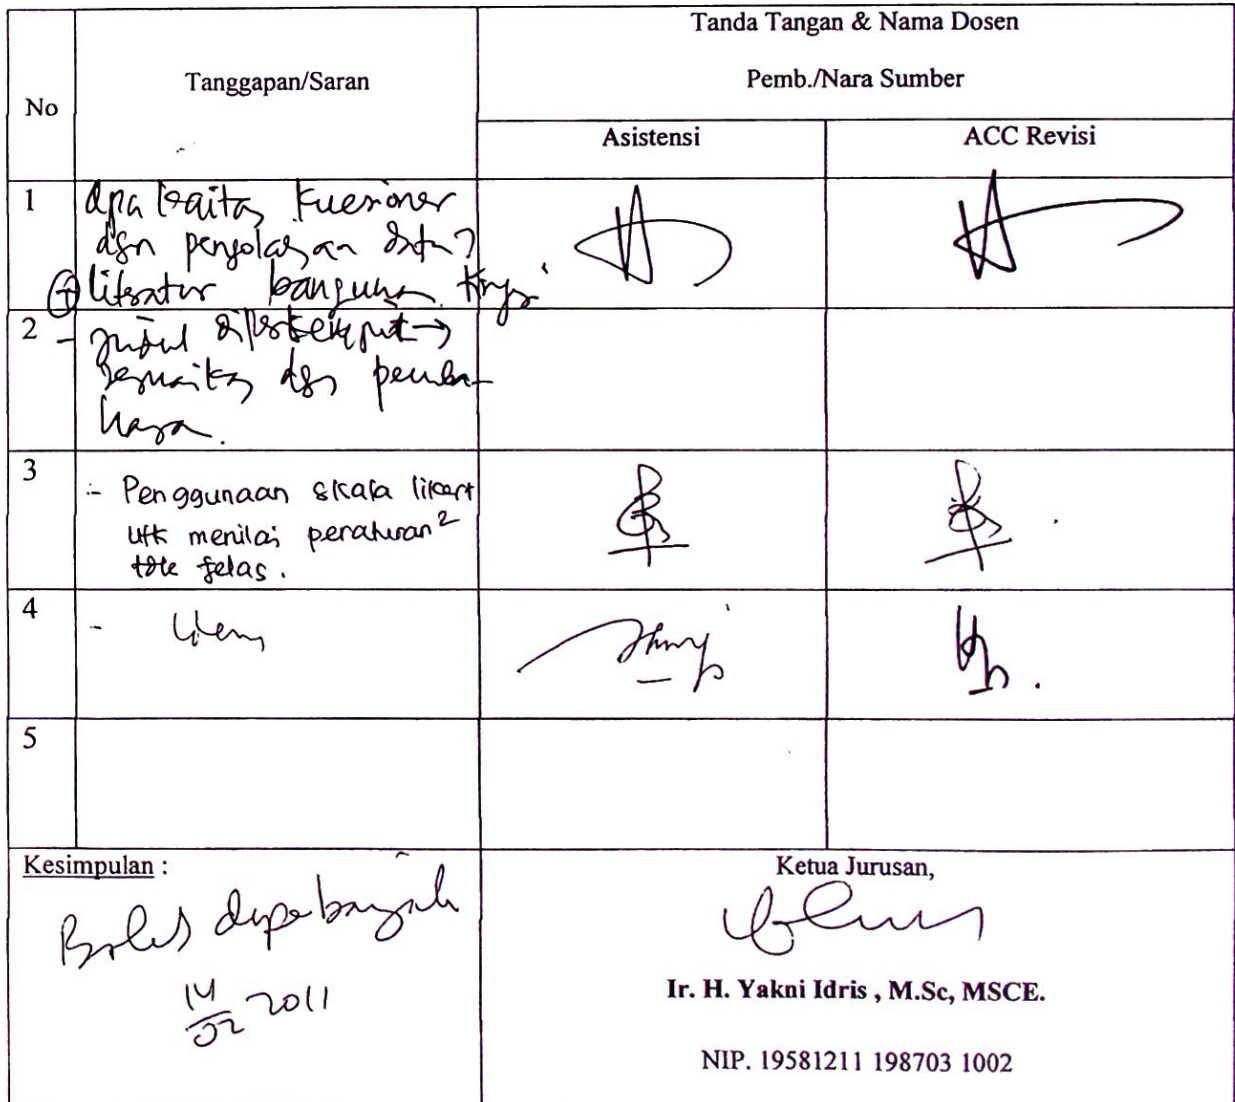 No
Tanggapan/Saran
Tanda Tangan & Nama Dosen
Pemb./Nara Sumber
Asistensi
ACC Revisi
1
apa kaitan kuesioner
dgn pengolahan data?
+ literatur bangunan
2
- judul
sesuaikan dgn pemba-
hasan.
3
- Penggunaan skala likert
utk menilai peraturan2
tdk jelas.
4
-
5
Kesimpulan :
Boleh diperbanyak
14/02 2011
Ketua Jurusan,
Ir. H. Yakni Idris , M.Sc, MSCE.
NIP. 19581211 198703 1002